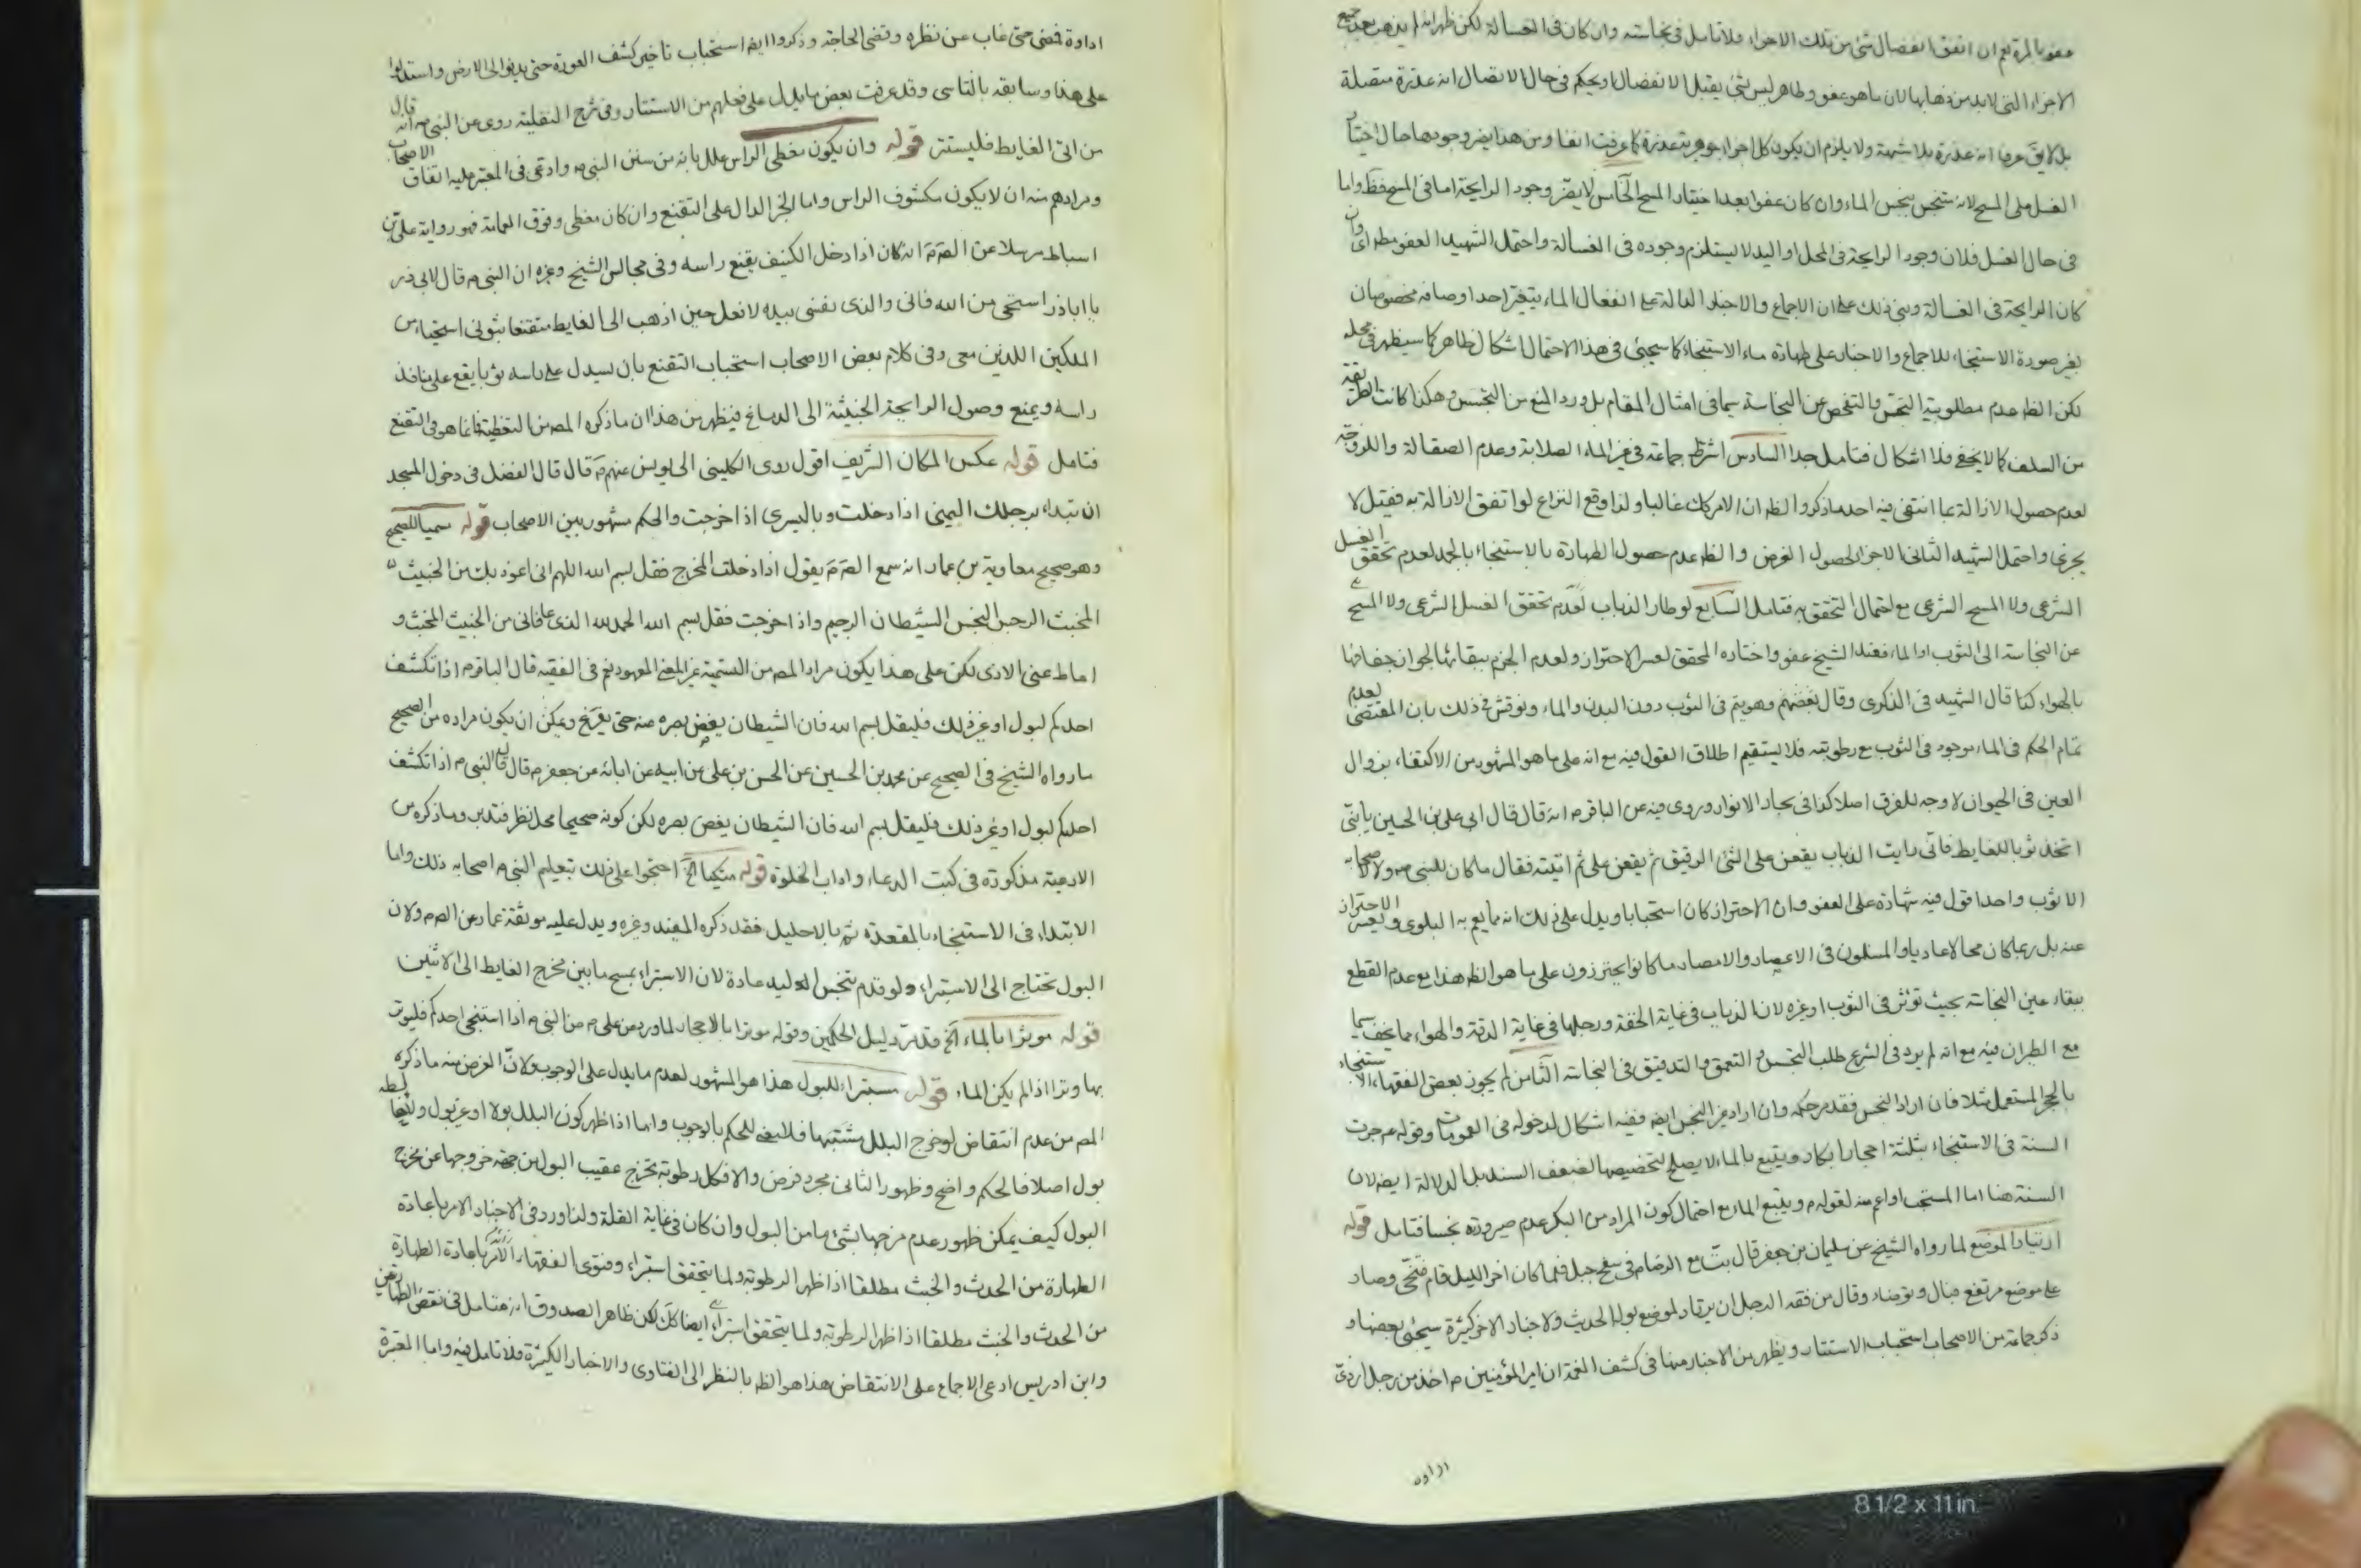 معفو بالمرة نعم ان اتفق انفصال شئ من تلك الاجزاء فلا تامل فى نجاسته وان كان فى الغسالة لكن ظهر انه لم يذهب بعد جميع
الاجزاء التى لابد من ذهابها لان ما هو عفو وطاهر ليس لشئ يقبل الانفصال او يحكم فى حال الاتصال انه عذرة متصلة
بل لا يق عرفا انه عذرة بلا شبهة ولا يلزم ان يكون كل اجزاء جوهرية عذرة كما عرفت انفا ومن هذا يضر وجودها حال اختيار
الغسل على المسح لانه ينجس الماء وان كان عفوا بعد اختيار المسح الخامس لا يضر وجود الرايحة اما فى المسح فظ واما
فى حال الغسل فلان وجود الرايحة فى المحل او اليد لا يستلزم وجوده فى الغسالة واحتمل الشهيد العفو مطلقا وان
كان الرايحة فى الغسالة وبنى ذلك على ان الاجماع والاخبار الدالة على انفعال الماء بتغير احد اوصافه مخصوصان
بغير صورة الاستنجاء للاجماع والاخبار على طهارة ماء الاستنجاء كما سيجئ فى هذا الاحتمال اشكال ظاهر كما سيظهر فى محله
لكن الظ عدم مطلوبية التجسس والتفحص عن النجاسة سيما فى امثال المقام بل ورد المنع من التجسس وهكذا كانت الطريقة
من السلف كما لا يخفى فلا اشكال فتامل جدا السادس اشترط جماعة فى غير الماء الصلابة وعدم الصقالة واللزوجة
لعدم حصول الازالة عما انتفى فيه احد ما ذكروا الظ ان الامر كك غالبا ولذا وقع النزاع لو اتفق الازالة به فقيل لا
يجزى واحتمل الشهيد الثانى الاجزاء لحصول الغرض والظ عدم حصول الطهارة بالاستنجاء بالجمد لعدم تحقق الغسل
الشرعى ولا المسح الشرعى مع احتمال التحقق به فتامل السابع لو طار الذباب لعدم تحقق الغسل الشرعى ولا المسح
عن النجاسة الى الثوب او الماء فعند الشيخ عفو واختاره المحقق لعسر الاحتراز ولعدم الجزم ببقائها لجواز جفافها
بالهواء كذا قال الشهيد فى الذكرى وقال بعضهم وهو يتم فى الثوب دون البدن والماء ونوقش فى ذلك بان المقتضى لعدم
تمام الحكم فى الماء موجود فى الثوب مع رطوبته فلا يستقيم اطلاق القول فيه مع انه على ما هو المشهور من الاكتفاء بزوال
العين فى الحيوان لا وجه للفرق اصلا كذا فى بحار الانوار وروى فيه عن الباقر م انه قال قال ابى على بن الحسين يا بنى
اتخذ ثوبا للغايط فانى رايت الذباب يقعن على الشئ الرقيق ثم يقعن على ثم اتيته فقال ما كان للنبى ص ولا لاصحابه
الا ثوب واحد اقول فيه شهادة على العفو وان الاحتراز كان استحبابا ويدل على ذلك انه مما يعم به البلوى ويعسر الاحتراز
عنه بل ربما كان محالا عاديا والمسلمون فى الاعصار والامصار ما كانوا يحترزون على ما هو الظ هذا مع عدم القطع
ببقاء عين النجاسة بحيث تؤثر فى الثوب او غيره لان الذباب فى غاية الخفة ورجلها فى غاية الدقة والهواء مما يجفف سيما
مع الطيران فيه مع انه لم يرد فى الشرع طلب التجسس و التعمق والتدقيق فى النجاسة الثامن لم يجوز بعض الفقهاء الاستنجاء
بالحجر المستعمل مثلا فان اراد النجس فقد مر حكمه وان اراد غير النجس ايضه ففيه اشكال لدخوله فى العمومات وقوله م جرت
السنة فى الاستنجاء بثلثة احجار ابكار ويتبع بالماء لا يصلح لتخصيصها لضعف السند بل الدلالة ايضه لان
السنة هنا اما المستحب او اعم منه لقوله م ويتبع الماء مع احتمال كون المراد من البكر عدم صيرورته نجسا فتامل قوله
ارتياد الموضع لما رواه الشيخ عن سليمان بن جعفر قال بت مع الرضا م فى سفح جبل فلما كان اخر الليل قام فتنحى وصار
على موضع مرتفع فبال وتوضاء وقال من فقه الرجل ان يرتاد لموضع بوله الحديث ولاخبار الاخر كثيرة سيجئ بعضها و
ذكر جماعة من الاصحاب استحباب الاستتار ويظهر من الاخبار منها فى كشف الغمة ان امير المؤمنين م اخذ من رجل
اداوة
اداوة فمضى حتى غاب عن نظره وقضى الحاجة وذكروا ايضه استحباب تاخير كشف العورة حتى يدنوا الى الارض واستدلوا
على هذا وسابقه بالتاسى وقد عرفت بعض ما يدل على فعلهم من الاستتار وفى شرح النفلية روى عن النبى ص انه قال
من اتى الغايط فليستتر قوله وان يكون مغطى الراس علل بانه من سنن النبى ص وادعى فى المعتبر عليه اتفاق الاصحاب
ومرادهم منه ان لا يكون مكشوف الراس واما الخبر الدال على التقنع وان كان مغطى وفوق العمامة فهو رواية على بن
اسباط مرسلا عن الص م انه كان اذا دخل الكنيف يقنع راسه وفى مجالس الشيخ وغيره ان النبى ص قال لابى ذر
يا اباذر استحى من الله فانى والذى نفسى بيده لا فعل حين اذهب الى الغايط متقنعا بثوبى استحياء من
الملكين اللذين معى وفى كلام بعض الاصحاب استحباب التقنع بان يسدل على راسه ثوبا يقع على منافذ
راسه ويمنع وصول الرايحة الخبيثة الى الدماغ فيظهر من هذا ان ما ذكره المص من التغطية فانما هو فى التقنع
فتامل قوله عكس المكان الشريف اقول روى الكلينى الى يونس عنهم م قال قال الفضل فى دخول المسجد
ان تبداء برجلك اليمنى اذا دخلت وباليسرى اذا خرجت والحكم مشهور بين الاصحاب قوله مسميا للصحيح
وهو صحيح معاوية بن عمار انه سمع الص م يقول اذا دخلت المخرج فقل بسم الله اللهم انى اعوذ بك من الخبيث
المخبث الرجس النجس الشيطان الرجيم واذا خرجت فقل بسم الله الحمد لله الذى عافانى من الخبيث المخبث و
اماط عنى الاذى لكن على هذا يكون مراد المص من التسمية غير المعنى المعهود نعم فى الفقيه قال الباقر م اذا تكشف
احدكم لبول او غير ذلك فليقل بسم الله فان الشيطان يغض بصره عنه حتى يفرغ ويمكن ان يكون مراده من الصحيح
ما رواه الشيخ فى الصحيح عن محمد بن الحسين عن الحسن بن على عن ابيه عن ابائه عن جعفر م قال قال النبى م اذا تكشف
احدكم لبول او غير ذلك فليقل بسم الله فان الشيطان يغض بصره لكن كونه صحيحا محل نظر فتدبر وما ذكره من
الادعية مذكورة فى كتب الدعاء واداب الخلوة قوله متكيا الخ احتجوا على ذلك بتعليم النبى م اصحابه ذلك واما
الابتداء فى الاستنجاء بالمقعدة ثم بالاحليل فقد ذكره المفيد وغيره ويدل عليه موثقة عمار عن الص م ولان
البول تحتاج الى الاستبراء ولو قدم تنجس اليد عادة لان الاستبراء بمسح ما بين مخرج الغايط الى الانثيين
قوله موترا بالماء الخ قد مر دليل الحكمين وقوله موترا بالاحجار لما ورد عن على م من النبى م اذا استنجى احدكم فليوتر
بها وترا اذا لم يكن الماء قوله مستبراء للبول هذا هو المشهور لعدم ما يدل على الوجوب ولان الغرض منه ما ذكره
المص من عدم انتقاض لو خرج البلل مشتبها فلا يعنى للحكم بالوجوب واما اذا ظهر كون البلل بولا او غير بول
بول اصلا فالحكم واضح وظهور الثانى مجرد فرض والا فكل رطوبة تخرج عقيب البول من جهة خروجها عن مخرج
البول كيف يمكن ظهور عدم مزجها بشئ ما من البول وان كان فى غاية القلة ولذا ورد فى الاخبار الامر باعادة
الطهارة من الحدث والخبث مطلقا اذا ظهر الرطوبة ولما يتحقق استبراء وفتوى الفقهاء الاكثر باعادة الطهارة
من الحدث والخبث مطلقا اذا ظهر الرطوبة ولما يتحقق استبراء ايضا كك لكن ظاهر الصدوق انه متامل فى نقض الطهارتين
وابن ادريس ادعى الاجماع على الانتقاض هذا هو الظ بالنظر الى الفتاوى والاخبار الكثيرة فلا تامل فيه واما المعتبرة
8 1/2 x 11 in.